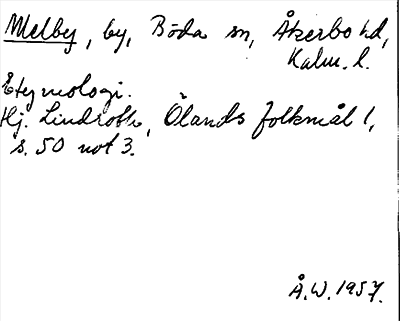 Melby, by, Böda sn, Åkerbo hd,
Kalm. l.
Etymologi.
Hj. Lindroth, Ölands folkmål 1,
s. 50 not 3.
Å.W. 1957.